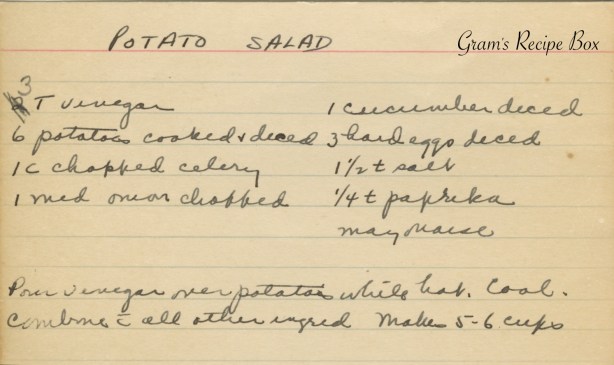 POTATO SALAD
Gram's Recipe Box
3 T vinegar
6 potatoes cooked & diced
1 c chopped celery
1 med onion chopped
1 cucumber diced
3 hard eggs diced
1 1/2 t salt
1/4 t paprika
mayonaise
Pour vinegar over potatoes while hot. Cool.
Combine c̄ all other ingred Makes 5-6 cups